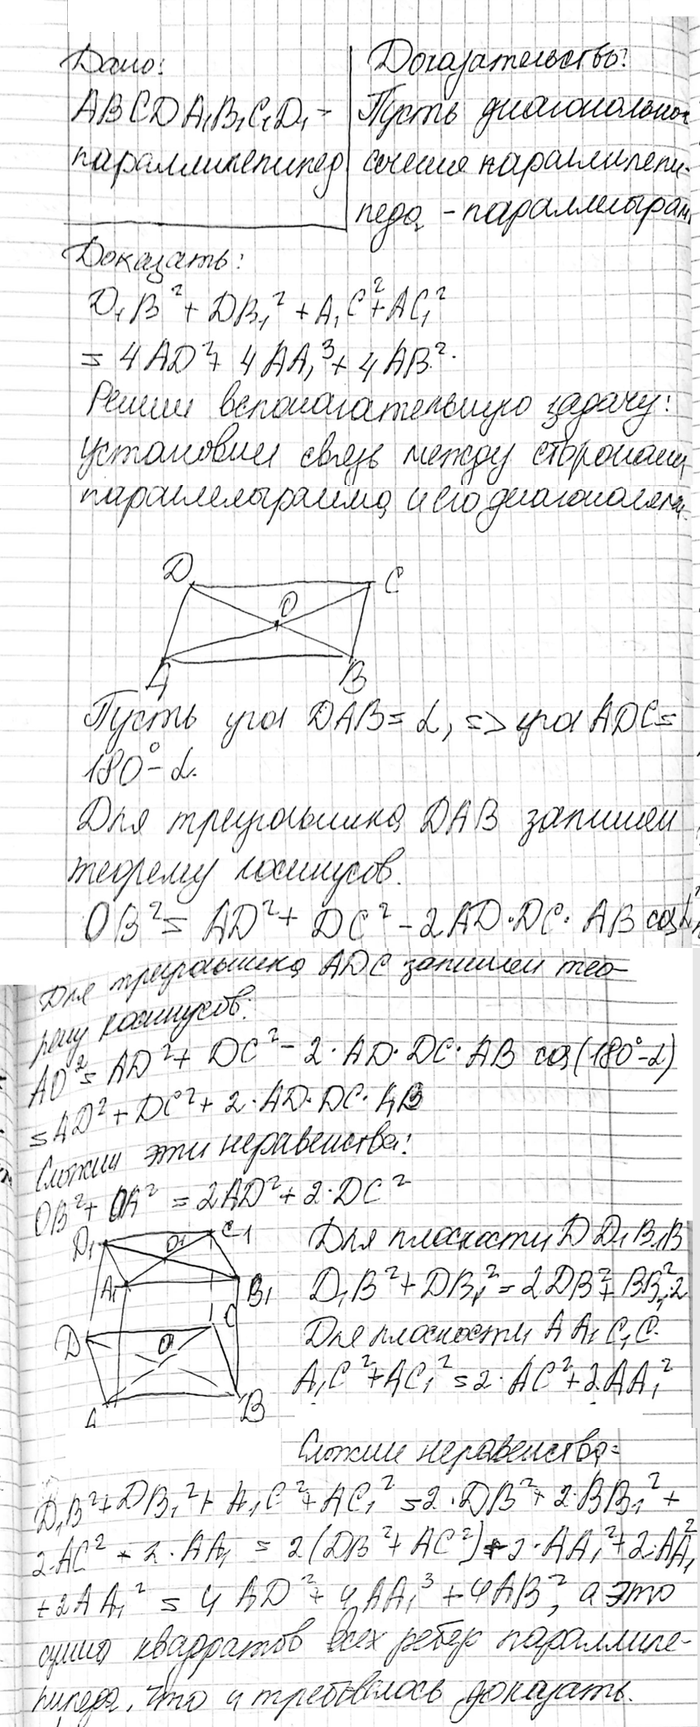 Дано:
ABCDA₁B₁C₁D₁ -
параллилепипед
Доказательство:
Пусть диагональное
сечение параллилепи-
педа - параллелограмм
Доказать:
D₁B² + DB₁² + A₁C² + AC₁²
= 4AD² + 4AA₁³ + 4AB².
Решим вспомагательную задачу:
установим связь между сторонами
параллелограмма и его диагоналями.
D C
O
A B
Пусть угол DAB = α, => угол ADC =
180° - α.
Для треугольника DAB запишем
теорему косинусов.
OB² = AD² + DC² - 2AD·DC·AB cos α
Для треугольника ADC запишем тео-
рему косинусов:
AO² = AD² + DC² - 2·AD·DC·AB cos(180° - α)
= AD² + DC² + 2·AD·DC·AB
Сложим эти неравенства:
OB² + OA² = 2AD² + 2·DC²
D₁ O₁ C₁
A₁ B₁
D O C
A B
Для плоскости DD₁B₁B
D₁B² + DB₁² = 2DB² + BB₁²·2
Для плоскости AA₁C₁C.
A₁C² + AC₁² = 2·AC² + 2AA₁²
Сложим неравенства:
D₁B² + DB₁² + A₁C² + AC₁² = 2·DB² + 2·BB₁² +
2·AC² + 2·AA₁ = 2(DB² + AC²) + 2·AA₁² + 2·AA₁²
+ 2AA₁² = 4AD² + 4AA₁³ + 4AB², а это
сумма квадратов всех ребер параллипе-
пипеда, что и требовалось доказать.